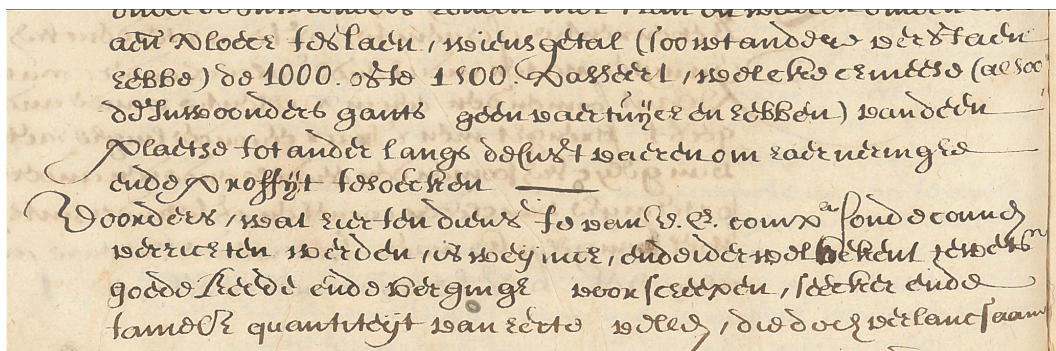 aen Ploeer te slaen, wiens getal (soo wt andere verstaen
hebbe) de 1000. ofte 1500. Passeert, welcke ermeede (alsoo
d'Inwoonders gants geen vaertuijch en hebben) van d'een
Plaetse tot ander langs de Cust vaeren om haer neringhe
ende Proffijt te soecken
Voorders, wat hier ten diens te van V. E. Comp.e soude connen
verricht en werden, is weijnich, ende ider wel bekent, te weten
goede Reede ende berginge voor scheepen, seecker ende
tamelijcke quantiteijt van herte vellen, die doch verlancsaam